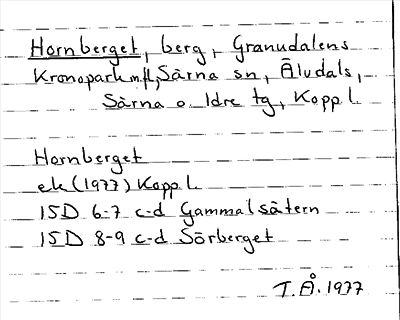 Hornberget, berg, Granudalens
Kronopark m.fl, Särna sn, Älvdals,
Särna o. Idre tg, Kopp l.
Hornberget
ek (1977) Kopp l.
15D 6-7 c-d Gammalsätern
15D 8-9 c-d Sörberget
T.Å. 1977